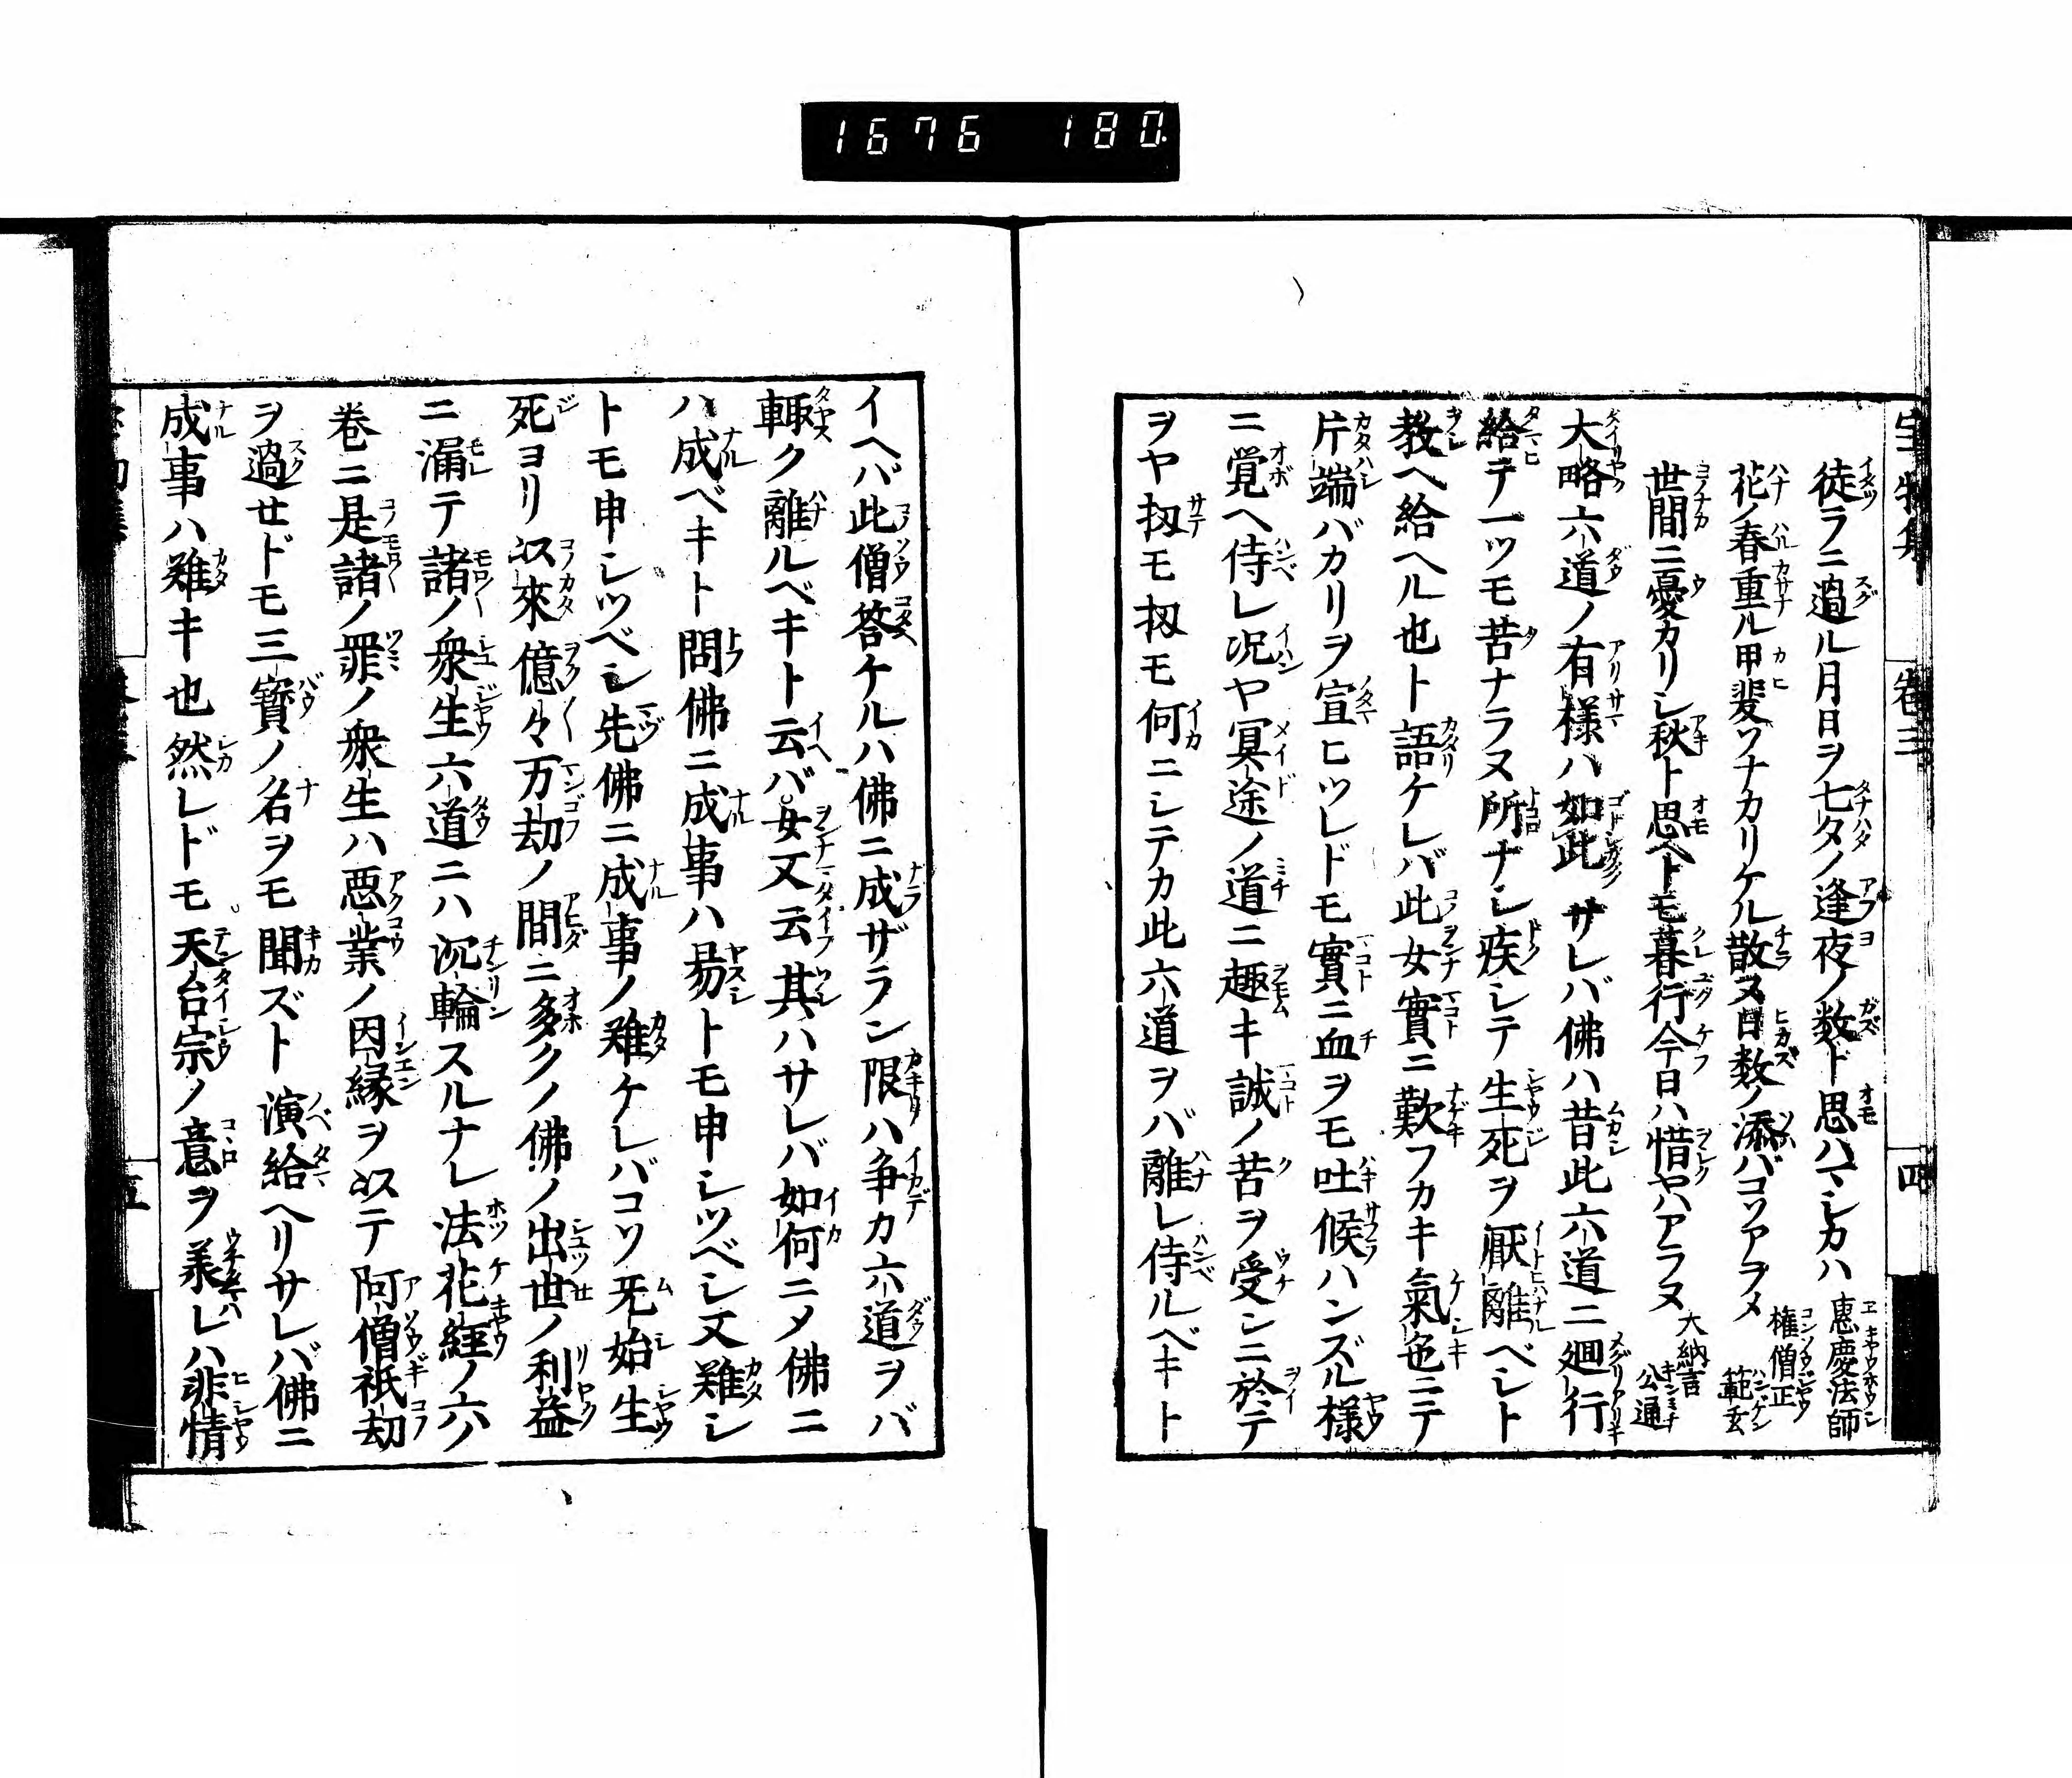 1676 180
徒ラニ過ル月日ヲ七夕ノ逢夜ノ数ト思ハマシカハ 惠慶法師
花ノ春重ル甲斐ゾナカリケル散ヌ日数ノ添バコソアラメ 権僧正範玄
世間ニ憂カリシ秋ト思ヘトモ暮行今日ハ惜ヤハアラヌ 大納言公通
大略六道ノ有様ハ如此サレバ佛ハ昔此六道ニ廻行
給テ一ツモ苦ナラヌ所ナシ疾シテ生死ヲ厭離ベシト
教ヘ給ヘル也ト語ケレバ此女實ニ歎フカキ氣色ニテ
片端バカリヲ宣ヒツレドモ實ニ血ヲモ吐候ハンズル様
ニ覚ヘ侍レ况ヤ冥途ノ道ニ趣キ誠ノ苦ヲ受シニ於テ
ヲヤ扨モ扨モ何ニシテカ此六道ヲバ離レ侍ルベキト
宝物集 卷三 四
イヘバ此僧答ケルハ佛ニ成ザラン限ハ争カ六道ヲバ
輙ク離ルベキト云バ女又云其ハサレバ如何ニメ佛ニ
ハ成ベキト問佛ニ成事ハ易トモ申シツベシ又難シ
トモ申シツベシ先佛ニ成事ノ難ケレバコソ无始生
死ヨリ以來億々万劫ノ間ニ多クノ佛ノ出世ノ利益
ニ漏テ諸ノ衆生六道ニハ沉輪スルナレ法花経ノ六ノ
巻ニ是諸ノ罪ノ衆生ハ悪業ノ因縁ヲ以テ阿僧祇劫
ヲ過セドモ三寳ノ名ヲモ聞ズト演給ヘリサレバ佛ニ
成事ハ難キ也然レドモ天台宗ノ意ヲ羕レハ非情